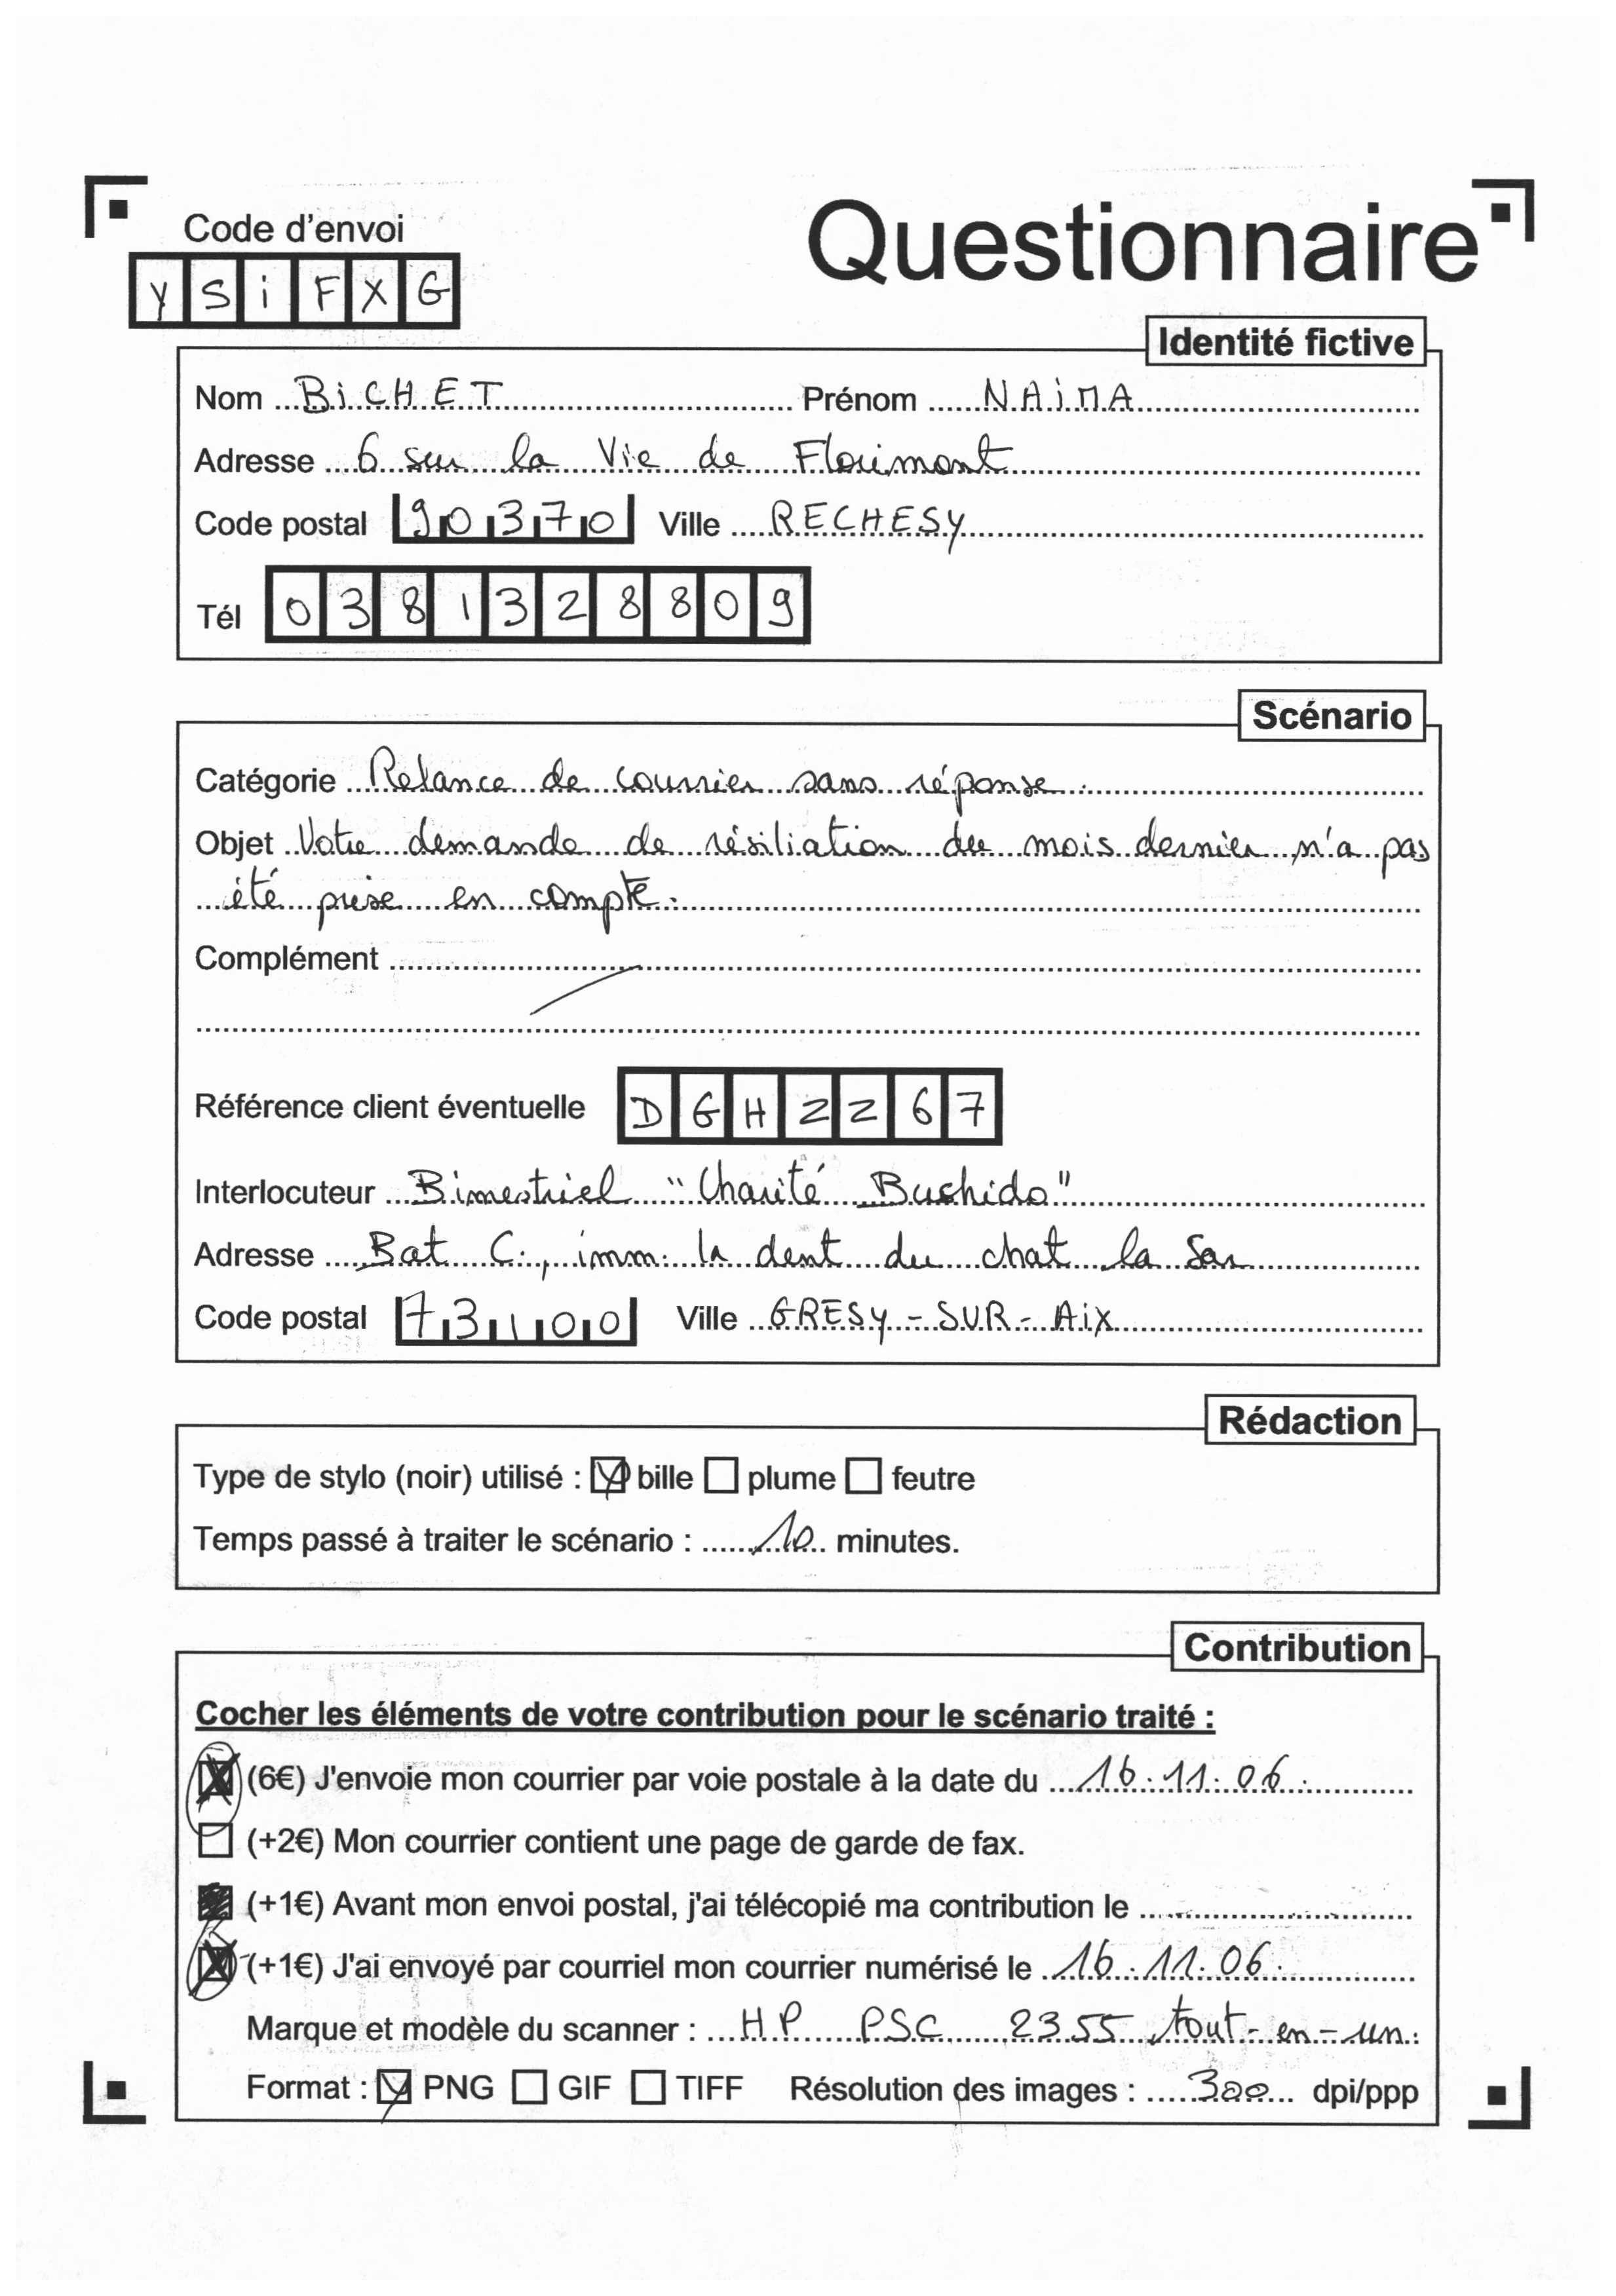 Code d'envoi
Questionnaire
YSiFXG
Identité fictive
Nom BiCHET Prénom NAiMA
Adresse 6 sur la Vie de Florimont
Code postal 90370 Ville RECHESY
Tél 0381328809
Scénario
Catégorie Relance de courrier sans réponse.
Objet Votre demande de résiliation du mois dernier n'a pas
été prise en compte.
Complément
Référence client éventuelle DGHZZ67
Interlocuteur Bimestriel "Charité Bushido"
Adresse Bat C., imm. la dent du chat la Sar
Code postal 73100 Ville GRESY-SUR-AiX
Rédaction
Type de stylo (noir) utilisé : bille plume feutre
Temps passé à traiter le scénario : 10 minutes.
Contribution
Cocher les éléments de votre contribution pour le scénario traité :
(6€) J'envoie mon courrier par voie postale à la date du 16.11.06.
(+2€) Mon courrier contient une page de garde de fax.
(+1€) Avant mon envoi postal, j'ai télécopié ma contribution le
(+1€) J'ai envoyé par courriel mon courrier numérisé le 16.11.06.
Marque et modèle du scanner : HP PSC 2355 tout-en-un.
Format : PNG GIF TIFF Résolution des images : 300 dpi/ppp